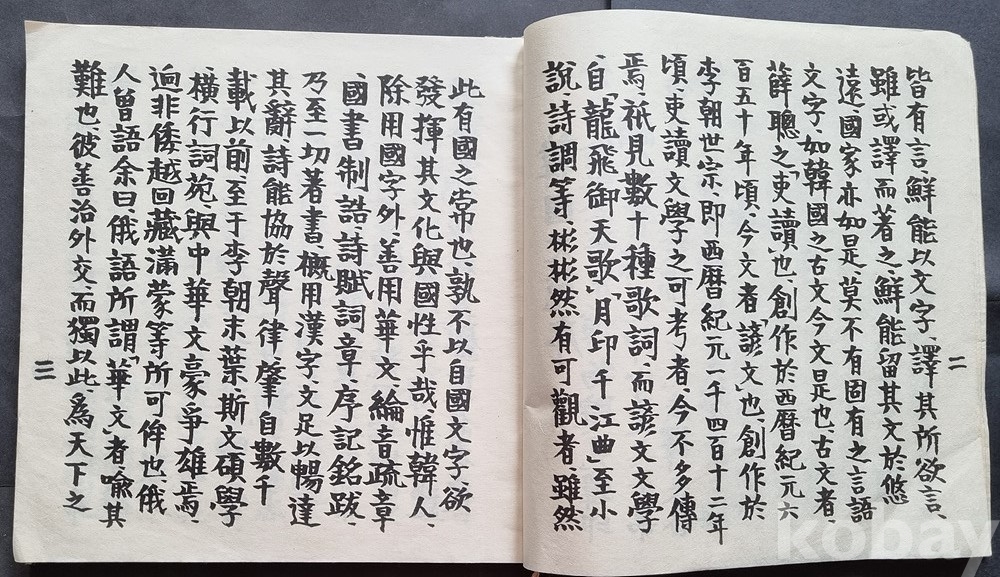 皆有言、鮮能以文字、譯其所欲言、
雖或譯而著之、鮮能留其文於悠
遠、國家亦如是、莫不有固有之言語
文字、如韓國之古文今文是也、古文者、
薛聰之「吏讀」也、創作於西曆紀元六
百五十年頃、今文者「諺文」也、創作於
李朝世宗、即西曆紀元一千四百十二年
頃、吏讀文學之可考者、今不多傳
焉、祇見數十種歌詞、而諺文文學
自「龍飛御天歌」「月印千江曲」至小
說詩調等、彬彬然有可觀者、雖然
二
此有國之常也、孰不以自國文字、欲
發揮其文化與國性乎哉、惟韓人、
除用國字外、善用華文、綸音疏章
國書制誥、詩賦詞章、序記銘跋、
乃至一切著書、概用漢字、文足以暢達
其辭、詩能協於聲律、肇自數千
載以前、至于李朝末葉、斯文碩學
橫行詞苑、與中華文豪爭雄焉、
逈非倭越回藏滿蒙等所可侔也、俄
人曾語余曰、俄語所謂「華文」者、喩其
難也、彼善治外交、而獨以此、爲天下之
三
kobay